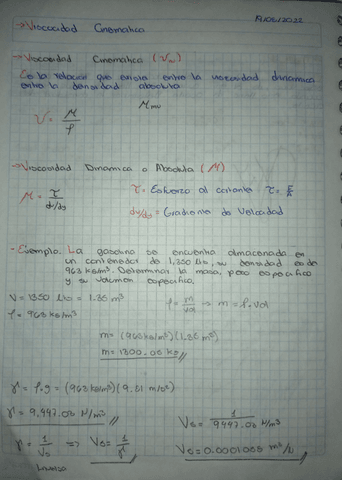 →Viscocidad Cinematica
14/06/2022
→Viscosidad Cinematica (ν)
Es la relacion que existe entre la viscosidad dinamica
entre la densidad absoluta
ν = μ/ρ
→Viscosidad Dinamica o Absoluta (μ)
μ = τ / dv/dy
τ = Esfuerzo al cortante τ = F/A
dv/dy = Gradiente de Velocidad
- Ejemplo. La gasolina se encuentra almacenada en
un contenedor de 1,350 lts, su densidad es de
963 kg/m³. Determinar la masa, peso especifico
y su volumen especifico.
V = 1350 lts = 1.35 m³
ρ = m/vol ⇒ m = ρ.vol
ρ = 963 kg/m³
m = (963 kg/m³)(1.35 m³)
m = 1300.05 kg
γ = ρ.g = (963 kg/m³)(9.81 m/s²)
γ = 9,447.03 N/m³
Vs = 1/9447.03 N/m³
γ = 1/Vs ⇒ Vs = 1/γ
Vs = 0.0001058 m³/N